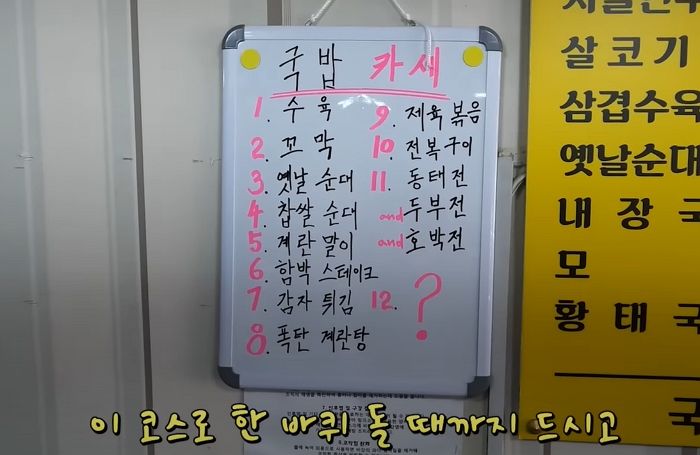 국밥 카세
1. 수육
2. 꼬막
3. 옛날 순대
4. 찹쌀 순대
5. 계란 말이
6. 함박 스테이크
7. 감자 튀김
8. 폭탄 계란탕
9. 제육 볶음
10. 전복구이
11. 동태전
and 두부전
and 호박전
12. ?
살코기
삼겹수육
옛날순대
내장국
모
황태국
국
이 코스로 한 바퀴 돌 때까지 드시고